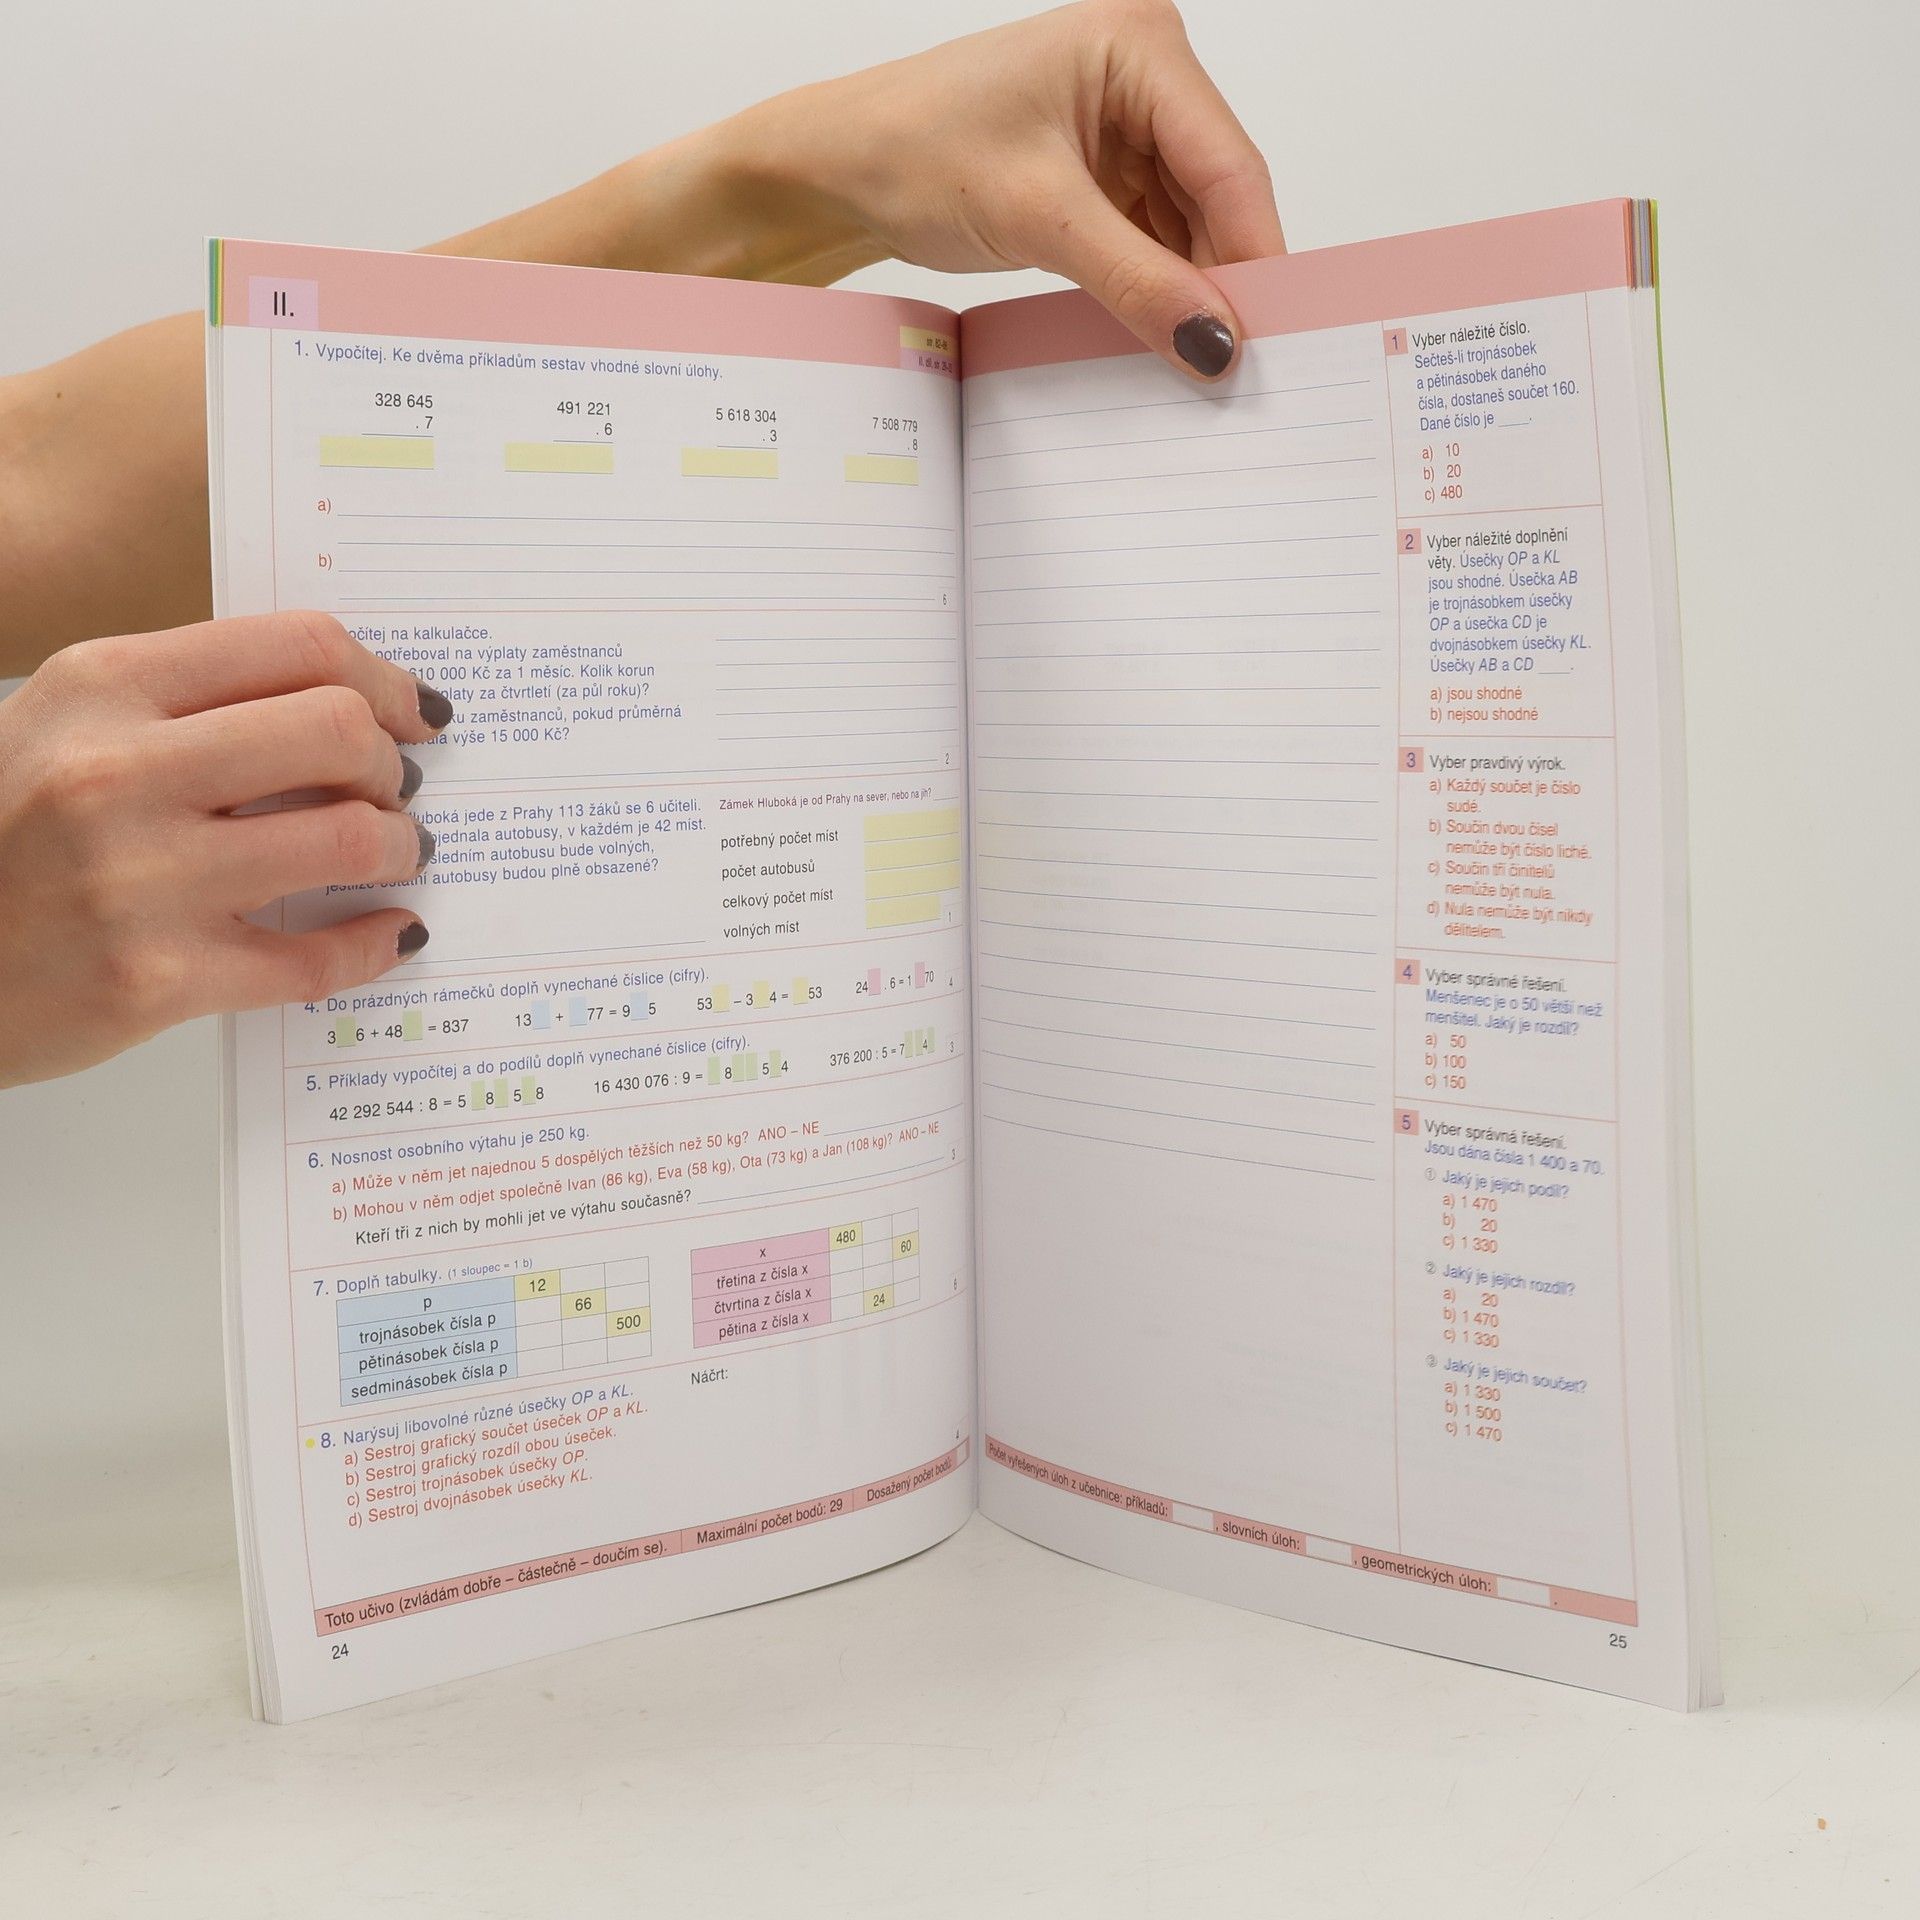 II.
1. Vypočítej. Ke dvěma příkladům sestav vhodné slovní úlohy.
328 645 491 221 5 618 304 7 508 779
. 7 . 6 . 3 . 8
a)
b)
6
na kalkulačce.
potřeboval na výplaty zaměstnanců
000 Kč za 1 měsíc. Kolik korun
za čtvrtletí (za půl roku)?
zaměstnanců, pokud průměrná
výše 15 000 Kč?
2
jede z Prahy 113 žáků se 6 učiteli.
autobusy, v každém je 42 míst.
autobusu bude volných,
autobusy budou plně obsazené?
Zámek Hluboká je od Prahy na sever, nebo na jih?
potřebný počet míst
počet autobusů
celkový počet míst
volných míst
1
4. Do prázdných rámečků doplň vynechané číslice (cifry).
3 6 + 48 = 837 13 + 77 = 9 5 53 – 3 4 = 53 24 . 6 = 1 70
4
5. Příklady vypočítej a do podílů doplň vynechané číslice (cifry).
42 292 544 : 8 = 5 8 5 8 16 430 076 : 9 = 8 5 4 376 200 : 5 = 7 4
3
6. Nosnost osobního výtahu je 250 kg.
a) Může v něm jet najednou 5 dospělých těžších než 50 kg? ANO – NE
b) Mohou v něm odjet společně Ivan (86 kg), Eva (58 kg), Ota (73 kg) a Jan (108 kg)? ANO – NE
Kteří tři z nich by mohli jet ve výtahu současně?
3
7. Doplň tabulky. (1 sloupec = 1 b)
p 12
trojnásobek čísla p 66
pětinásobek čísla p 500
sedminásobek čísla p
x 480
třetina z čísla x 60
čtvrtina z čísla x
pětina z čísla x 24
6
8. Narýsuj libovolné různé úsečky OP a KL.
a) Sestroj grafický součet úseček OP a KL.
b) Sestroj grafický rozdíl obou úseček.
c) Sestroj trojnásobek úsečky OP.
d) Sestroj dvojnásobek úsečky KL.
Náčrt:
4
Toto učivo (zvládám dobře – částečně – doučím se). Maximální počet bodů: 29 Dosažený počet bodů:
24
1 Vyber náležité číslo.
Sečteš-li trojnásobek
a pětinásobek daného
čísla, dostaneš součet 160.
Dané číslo je ____.
a) 10
b) 20
c) 480
2 Vyber náležité doplnění
věty. Úsečky OP a KL
jsou shodné. Úsečka AB
je trojnásobkem úsečky
OP a úsečka CD je
dvojnásobkem úsečky KL.
Úsečky AB a CD ____.
a) jsou shodné
b) nejsou shodné
3 Vyber pravdivý výrok.
a) Každý součet je číslo
sudé.
b) Součin dvou čísel
nemůže být číslo liché.
c) Součin tří činitelů
nemůže být nula.
d) Nula nemůže být nikdy
dělitelem.
4 Vyber správné řešení.
Menšenec je o 50 větší než
menšitel. Jaký je rozdíl?
a) 50
b) 100
c) 150
5 Vyber správná řešení.
Jsou dána čísla 1 400 a 70.
① Jaký je jejich podíl?
a) 1 470
b) 20
c) 1 330
② Jaký je jejich rozdíl?
a) 20
b) 1 470
c) 1 330
③ Jaký je jejich součet?
a) 1 330
b) 1 500
c) 1 470
Počet vyřešených úloh z učebnice: příkladů: , slovních úloh: , geometrických úloh: .
25